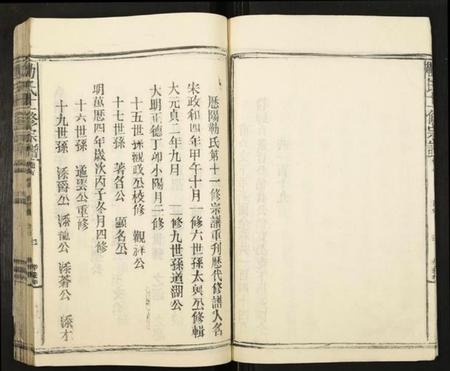 歷陽勒氏第十一修宗譜重刊歷代修譜人名
宋政和四年甲午十月一修六世孫太與公修輯
大元貞二年九月 一修九世孫道湖公
大明正德丁卯小陽月三修
十五世孫 政公校修 觀祥公
十七世孫 著名公 顯名公
明萬歷四年歲次丙子冬月四修
十六世孫 通雲公重修
十九世孫 添爵公 添龍公 添著公 添才
十一修宗譜